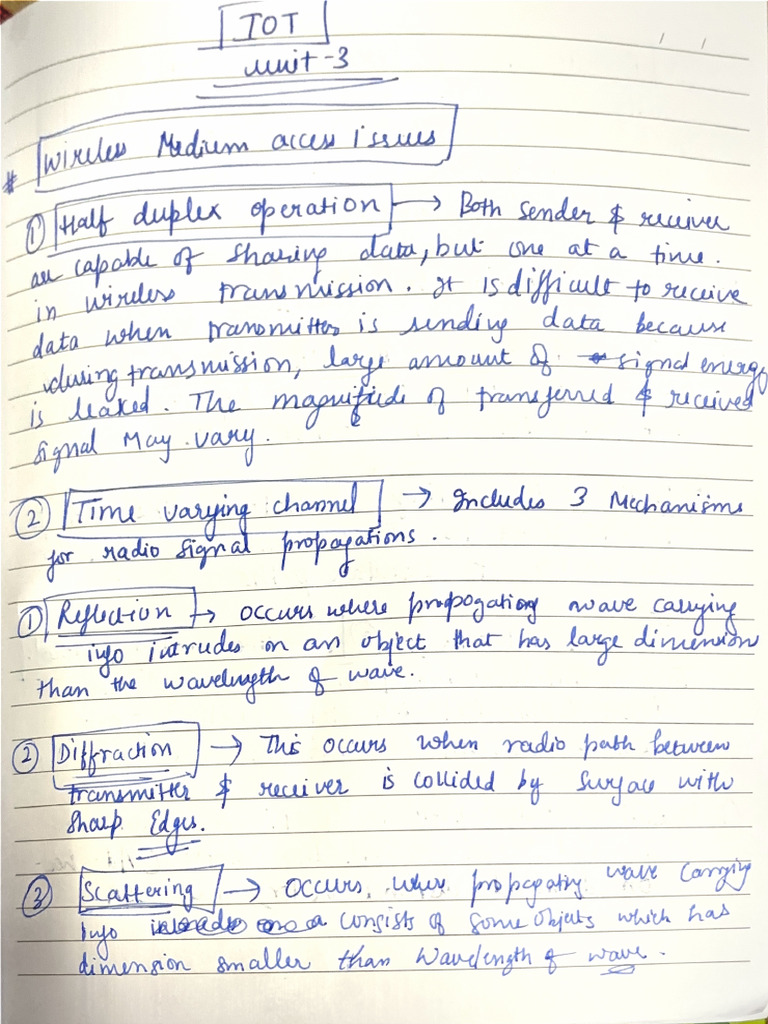 IOT
Unit-3
# Wireless Medium access issues
① Half duplex operation → Both Sender & receiver
are capable of sharing data, but one at a time.
in wireless transmission. It is difficult to receive
data when transmitter is sending data because
during transmission, large amount of signal energy
is leaked. The magnitude of transferred & received
signal may vary.
② Time varying channel → Includes 3 Mechanisms
for radio signal propagations.
① Reflection → occurs where propogationg wave carrying
info intrudes on an object that has large dimension
than the wavelength of wave.
② Diffraction → This occurs when radio path between
transmitter & receiver is collided by surface with
sharp Edges.
③ Scattering → occurs where propegating wave carrying
info consists of some objects which has
dimension smaller than wavelength of wave.